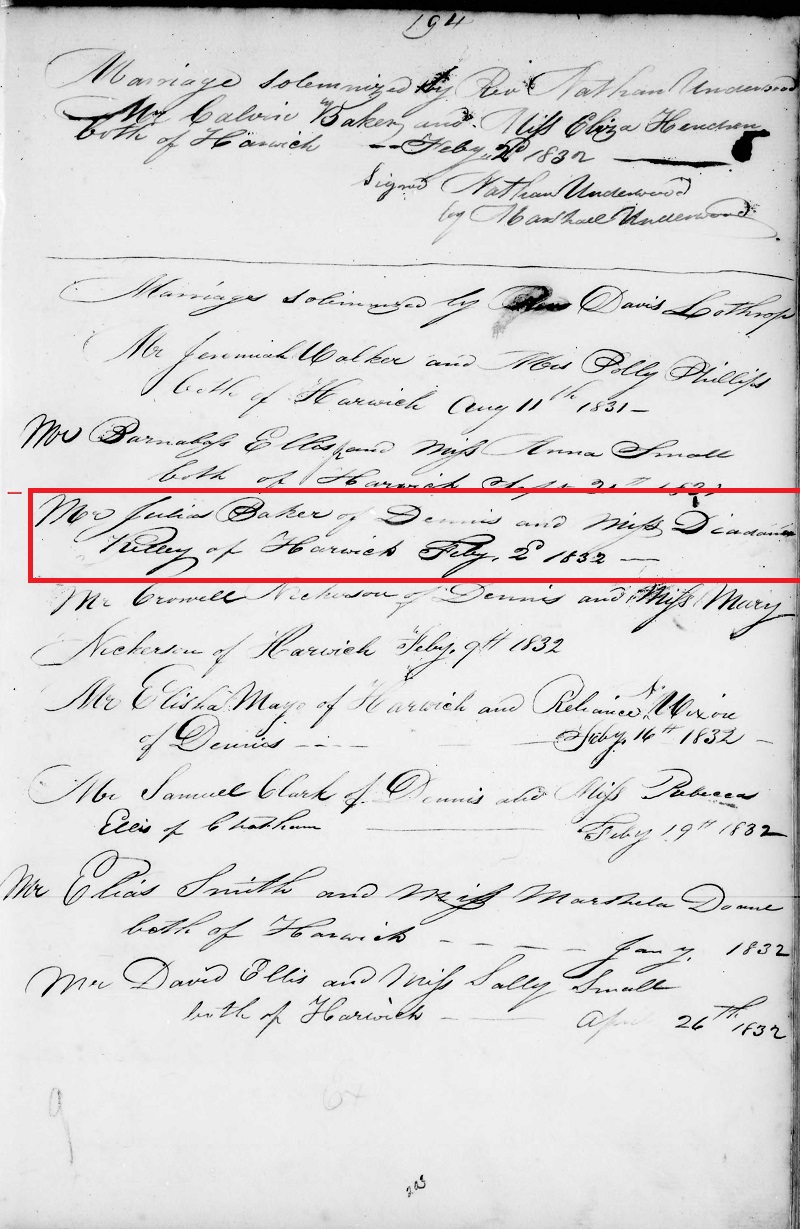 194
Marriage solemnized by Rev Nathan Underwood
Mr Calvin Baker and Miss Eliza
both of Harwich -- Feby 2d 1832
Signed Nathan Underwood
by Marshall Underwood
Marriages solemnized by Davis Lothrop
Mr Jeremiah Walker and Mrs Polly Phillips
both of Harwich Aug 11th 1831 -
Mr Ellis and Miss Anna Small
both of Harwich
Mr Baker of Dennis and Miss
Kelley of Harwich Feby. 2d 1832 —
Mr Crowell Nickerson of Dennis and Miss Mary
Nickerson of Harwich Feby. 9th 1832
Mr Elisha Mayo of Harwich and Reliance N
of Dennis - - - - Feby. 16th 1832 -
Mr Samuel Clark of Dennis and Miss Rebecca
Ellis of Chatham — Feby 19th 1832
Mr Elias Smith and Miss Doane
both of Harwich - - - - Jany. 1832
Mr David Ellis and Miss Sally Small
both of Harwich - - - 26th 1832
9